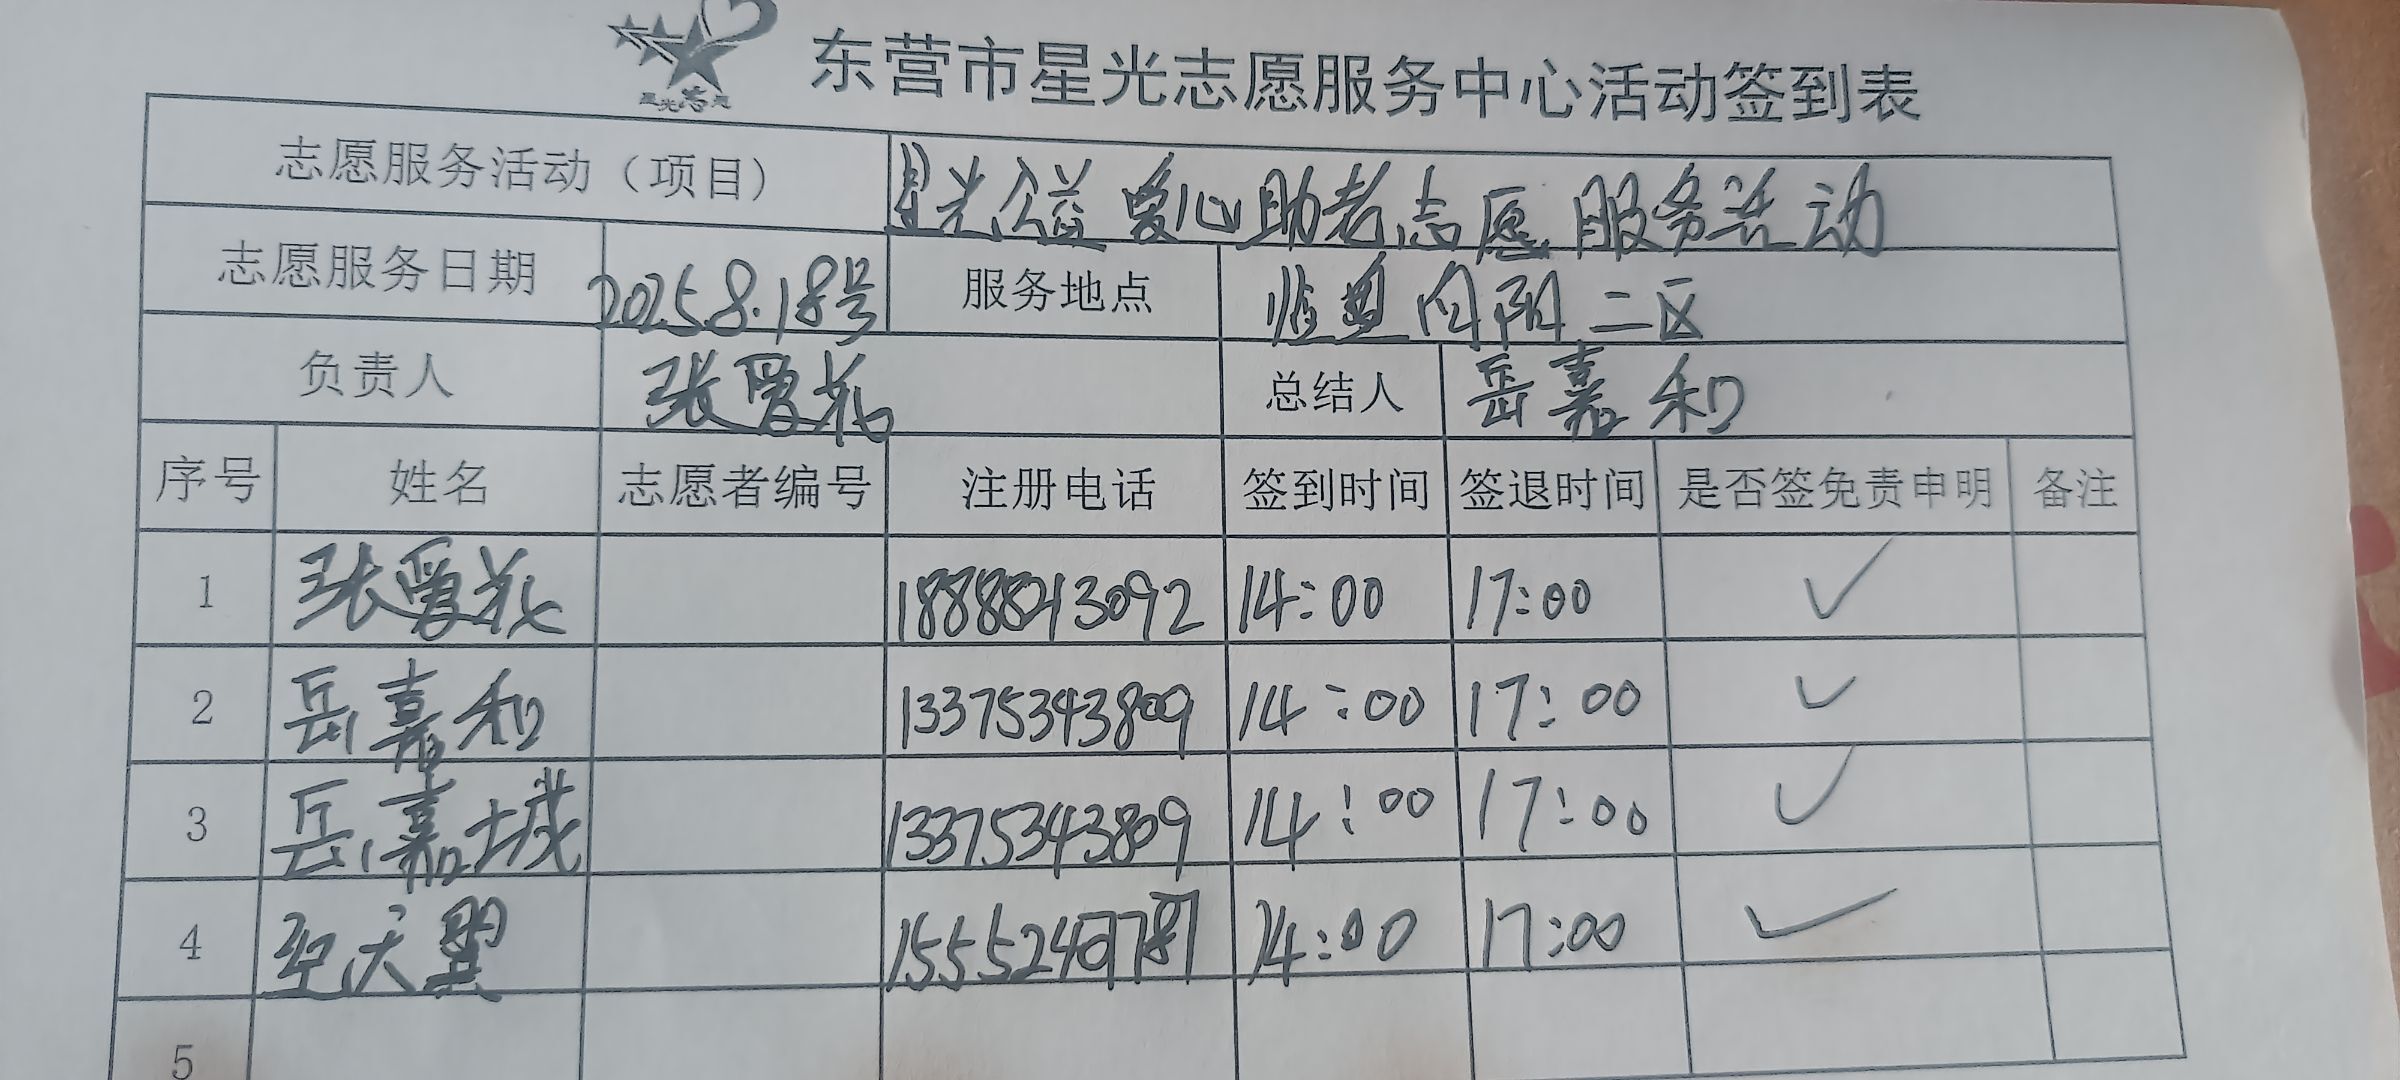 星光志愿
东营市星光志愿服务中心活动签到表
志愿服务活动（项目） 星光公益爱心助老志愿服务活动
志愿服务日期 2025.8.18号 服务地点 临盘向阳二区
负责人 张爱花 总结人 岳嘉和
序号 姓名 志愿者编号 注册电话 签到时间 签退时间 是否签免责申明 备注
1 张爱花 18888213092 14:00 17:00 ✓
2 岳嘉和 13375343809 14:00 17:00 ✓
3 岳嘉城 13375343809 14:00 17:00 ✓
4 天翼 14:00 17:00 ✓
5